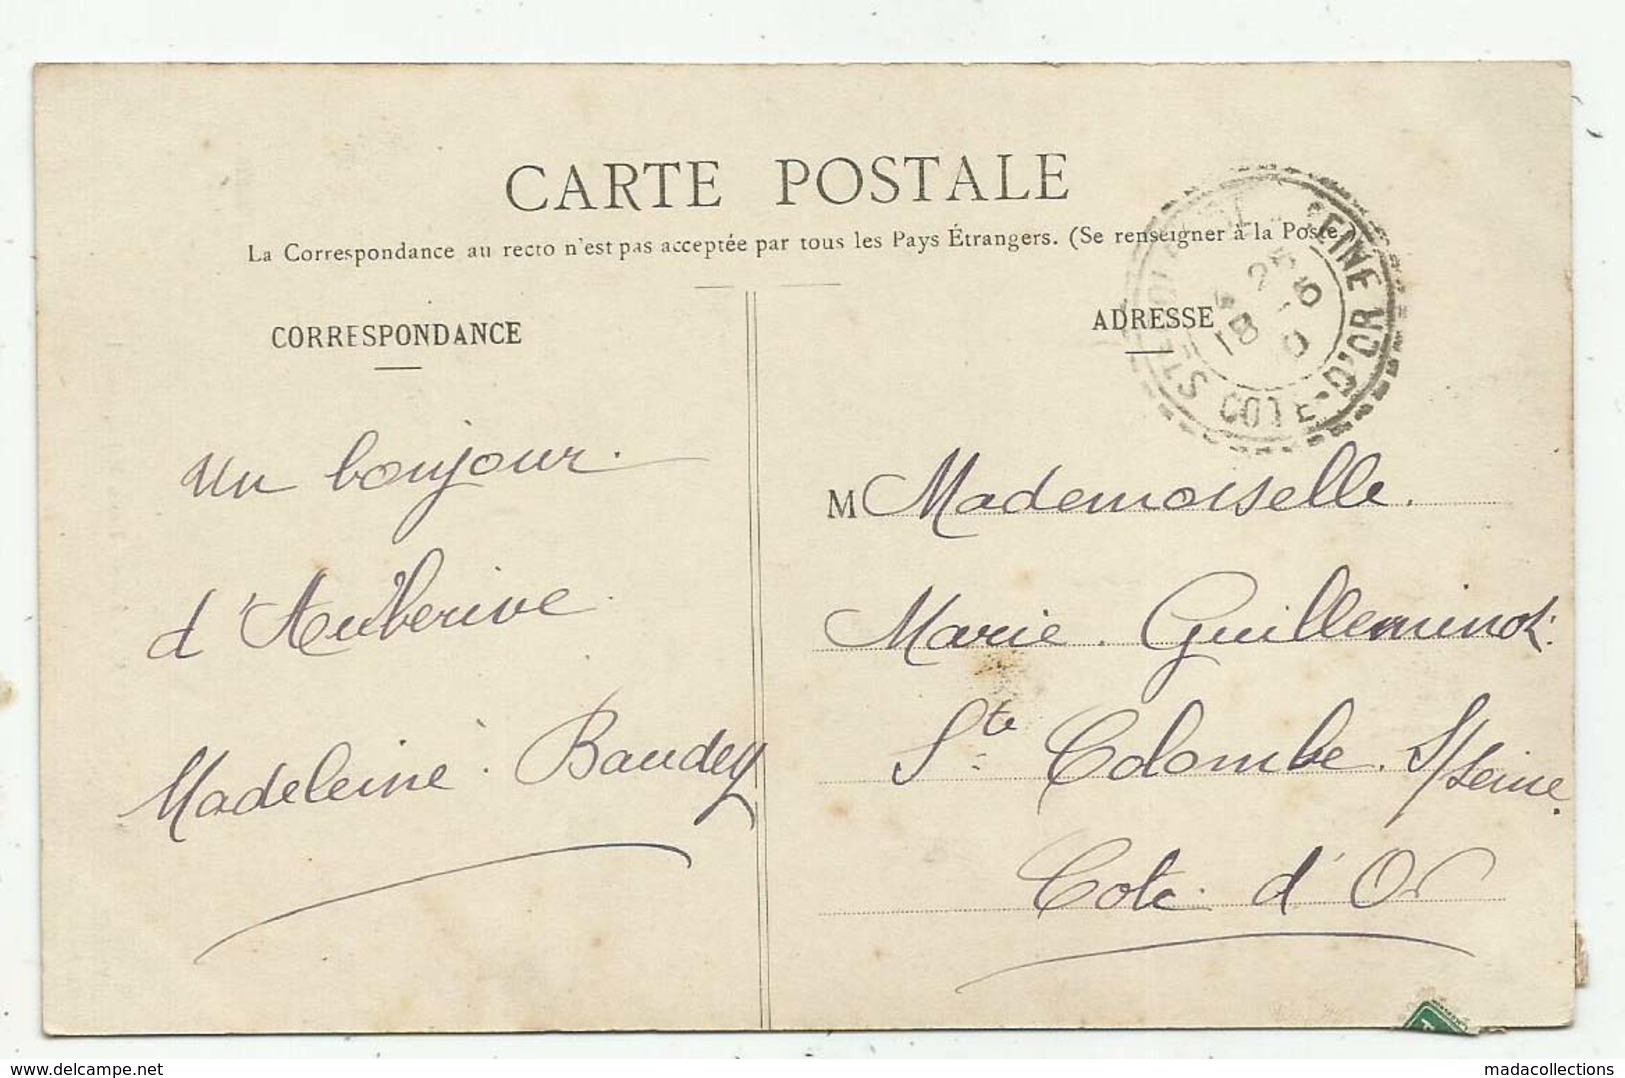 CARTE POSTALE
La Correspondance au recto n'est pas acceptée par tous les Pays Étrangers. (Se renseigner à la Poste.)
CORRESPONDANCE
ADRESSE
SEINE
COTE-D'OR
18
Un bonjour.
d'Auberive
Madeleine. Baudey
M Mademoiselle.
Marie. Guilleminot.
Ste Colombe. S/Seine.
Cote. d'Or
www.delcampe.net
madacollections